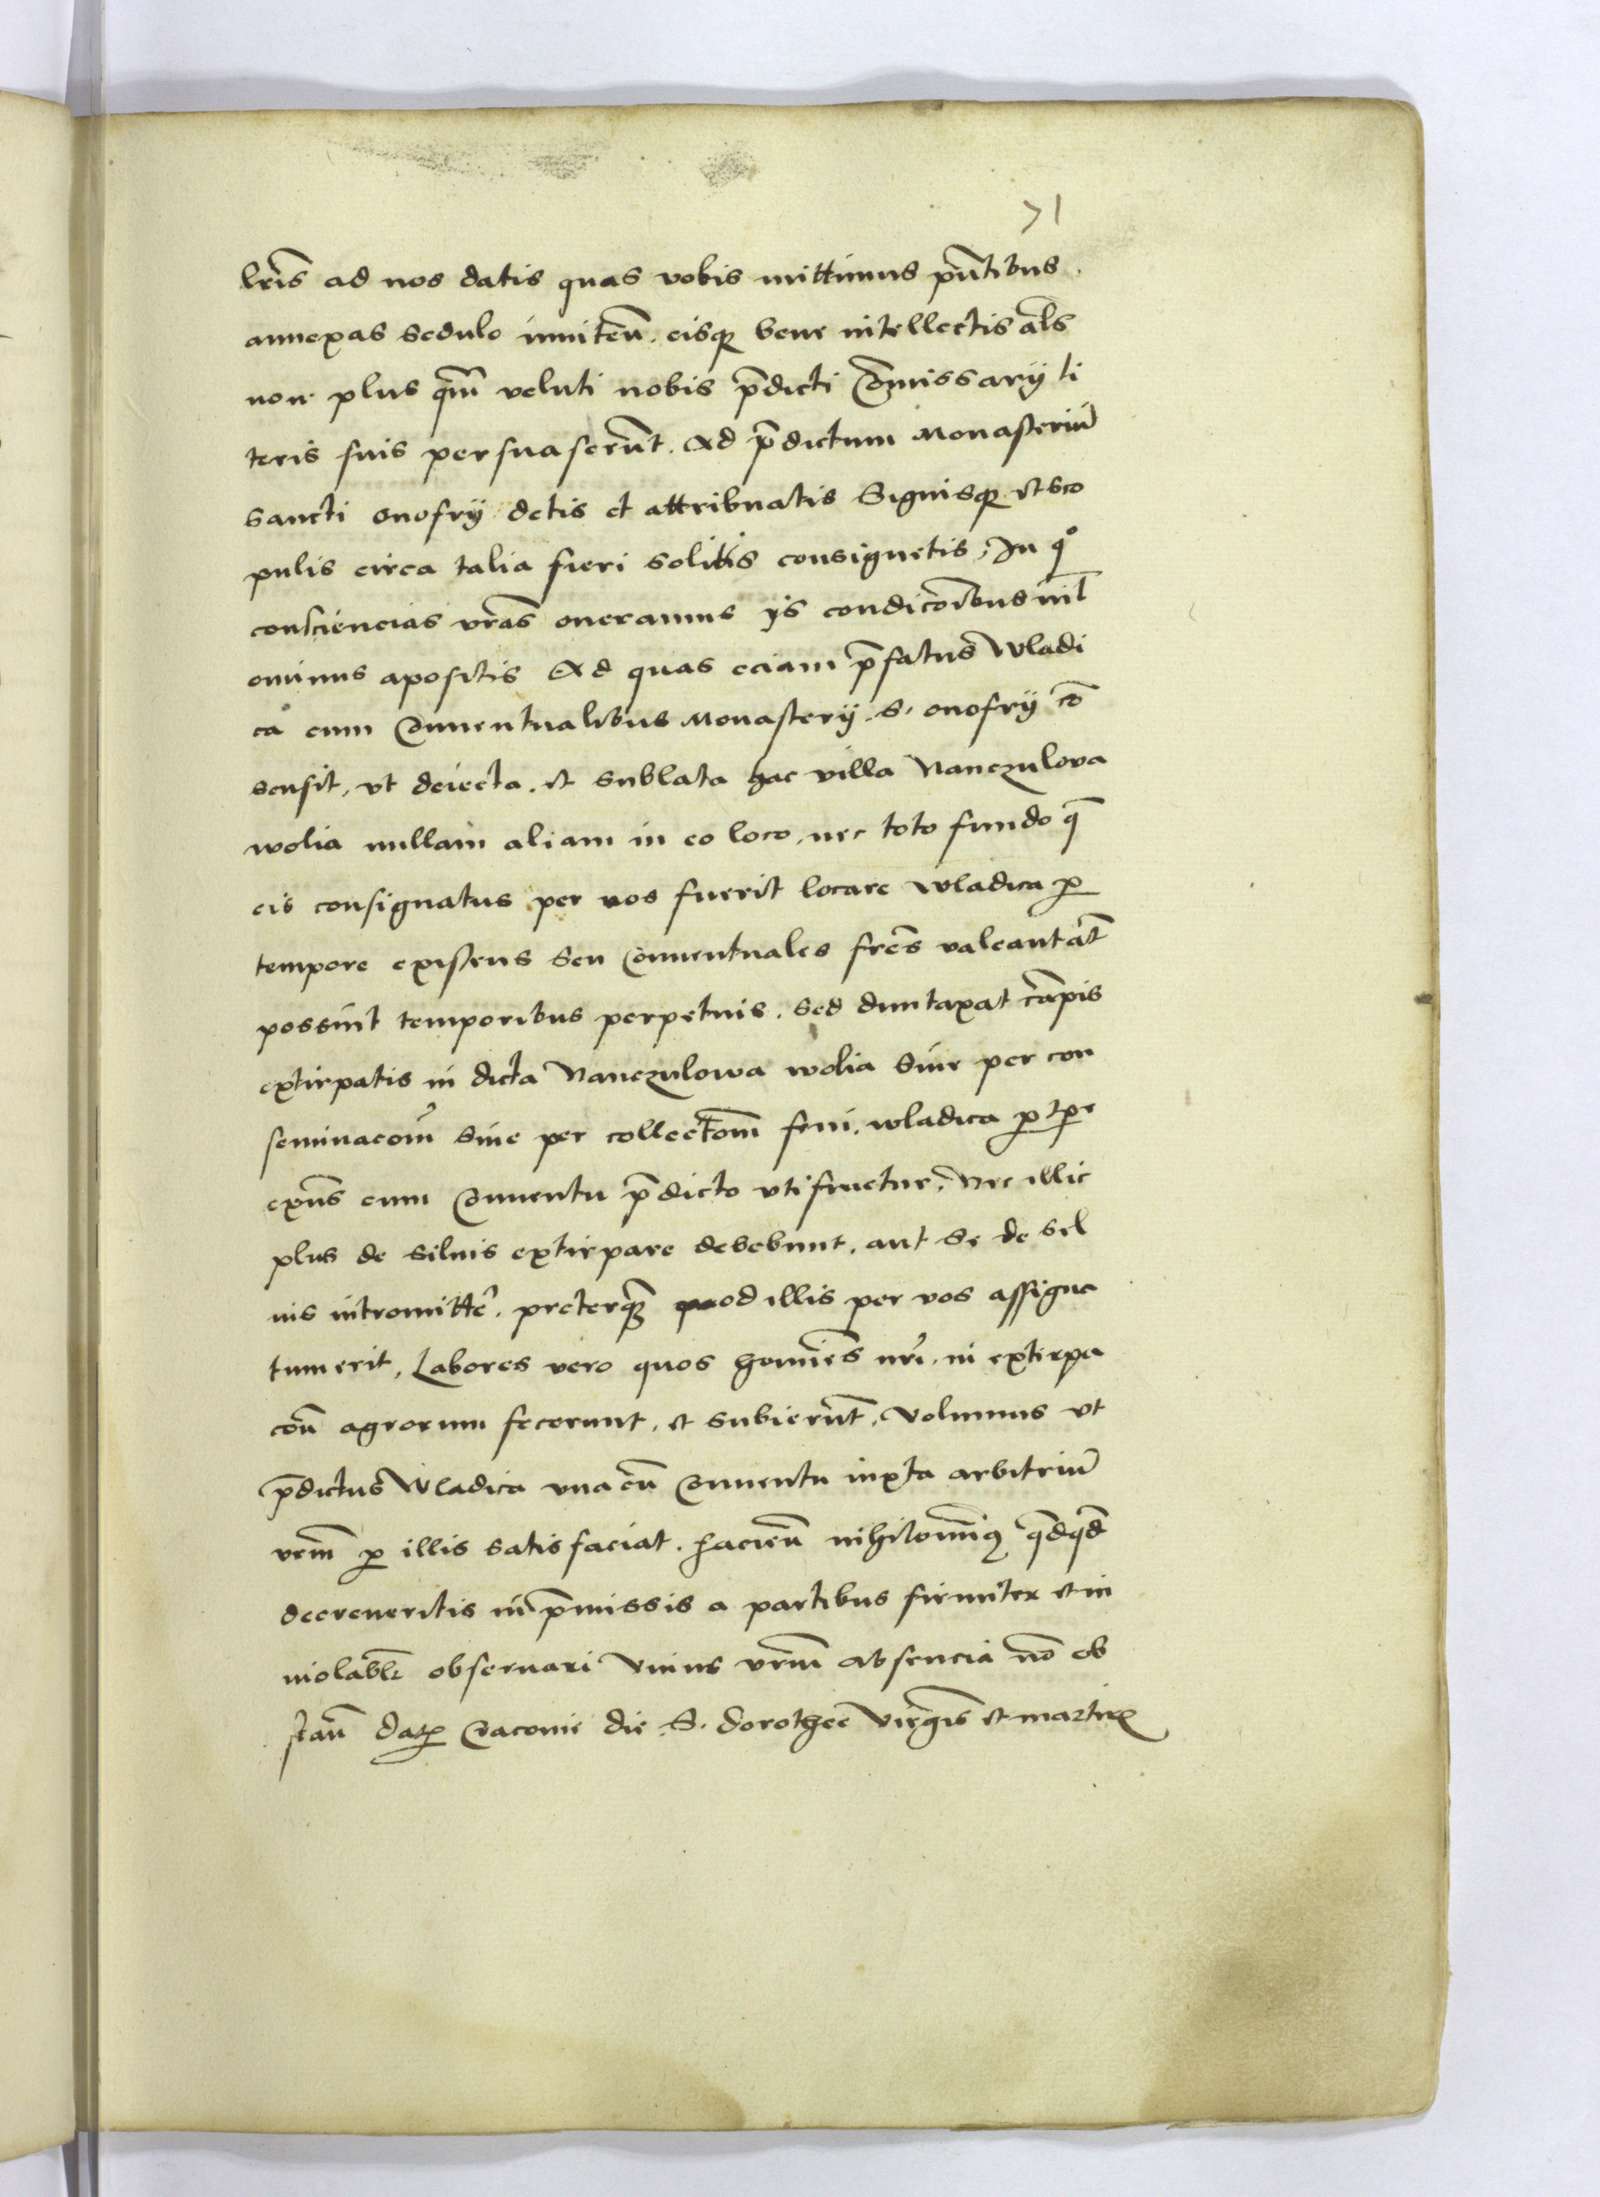 71
lr̃is ad nos datis quas vobis mittimus pñtibus.
annexas sedulo inniteñ. eisqꝫ bene intellectis al̃s
non plus qm̃ veluti nobis p̃dicti Com̃issarÿ li
teris suis persuaserũt. Ad p̃dictum Monasteriũ
Sancti Onofrÿ detis et attribuatis Signisqꝫ et sco
pulis circa talia fieri solitis consignetis, In qº
consciencias vr̃as oneramus ÿs condicõibus nil̃
ominus apositis Ad quas eciam p̃fatus Wladi
ca cum Conuentualibus Monasterÿ. S. Onofrÿ cõ
sensit, vt deiecta. et sublata hac villa Nanczulova
wolia nullam aliam in eo loco, nec toto fundo q̃
eis consignatus per vos fuerit locare Wladica ꝓ
tempore existens seu Conuentuales frẽs valeant ãt
possint temporibus perpetuis. Sed duntaxat cãpis
extirpatis in dicta Nanczulowa wolia Siue per con
seminacoẽm Siue per collectoẽm feni, wladica ꝓ tp̃r
exñs cum Conuentu p̃dicto vti fruetur, Nec illic
plus de siluis extirpare debebunt, aut se de sil
uis intromitter̃. preterqꝫ quod illis per vos assigna
tum erit, Labores vero quos homiẽs nr̃i, in extirpa
cõñ agrorum fecerunt, et subierũt, Volumus vt
p̃dictus Wladica vna cũ Conuentu iuxta arbitriũ
vrm̃ ꝓ illis satisfaciat. Facieñ nihilomiꝯ q̃dq̃d
decreueritis in p̃missis a partibus firmiter et in
violabl̃r obseruari Vnius vrm̃ absencia nõ ob
stañ Datꝫ Cracouie die. S. Dorothee Virgĩs et martiris